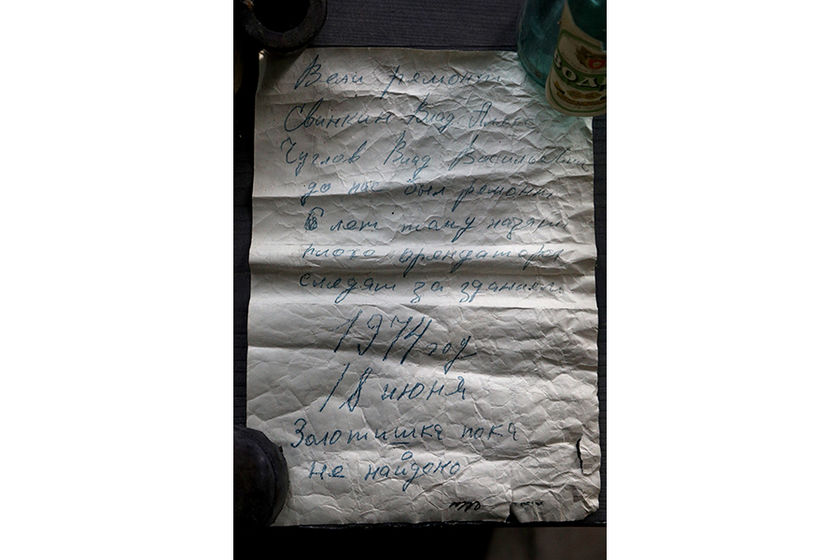 Вели ремонт
Свинкин Влад.
Чуглов Влад Васильевич
до нас был ремонт
6 лет тому назад
плохо арендаторы
следят за зданием
1974 год
18 июня
Золотишка пока
не найдено